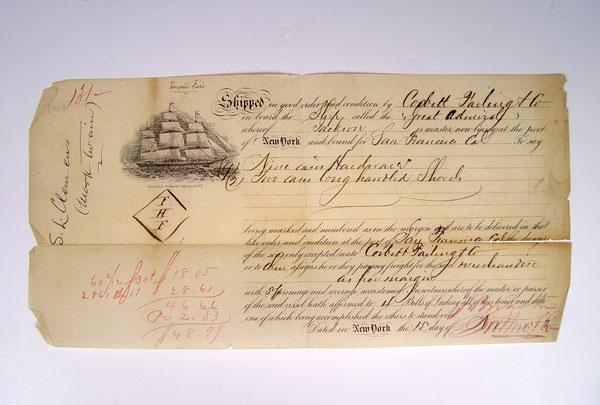 131-
Eugene Field
S. L. Clemens
(Mark Twain)
Shipped in good order and condition by Corbett Failing & Co
on board the Ship called the Great Admiral
whereof Jackson is master now lying at the port
of New York and bound for San Francisco Cal To say
Nine cases Hardware
Two cases long handled Shovels
F
H
F
being marked and numbered as in the margin & are to be delivered in the
like order and condition at the port of San Francisco Cal the danger
of the seas only excepted unto Corbett Failing & Co
or to their assigns he or they paying freight for the said merchandise
as per margin
with 5% primage and average accustomed. In witness whereof the master or purser
of the said vessel hath affirmed to 4 Bills of Lading all of this tenor and date
one of which being accomplished the others to stand void.
Dated in New York the 15 day of
18.05
28.61
46.66
Pr 2.33
$48.99